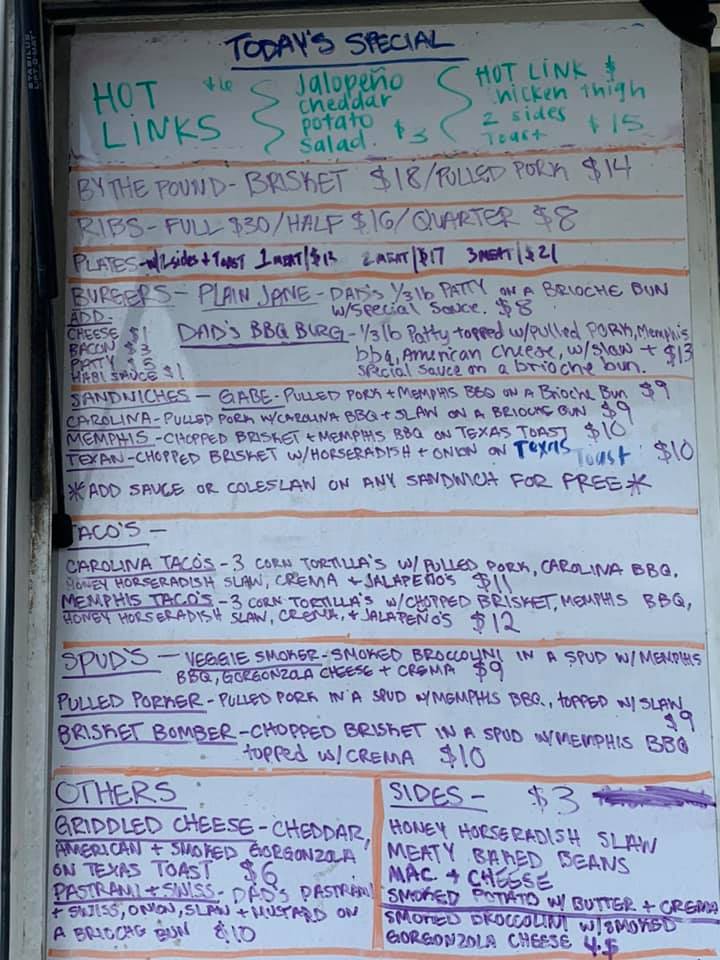 TODAY'S SPECIAL
HOT LINKS $6
Jalopeño cheddar potato salad. $3
HOT LINK & chicken thigh 2 sides Toast $15
BY THE POUND- BRISKET $18/PULLED PORK $14
RIBS- FULL $30/HALF $16/QUARTER $8
PLATES- W/2 sides + TOAST 1 MEAT/$13 2 MEAT/$17 3 MEAT/$21
BURGERS- PLAIN JANE- DAD'S 1/3 lb PATTY ON A BRIOCHE BUN
W/Special Sauce. $8
ADD-
CHEESE $1
BACON $3
PATTY $3
HABI SAUCE $1
DAD'S BBQ BURG-1/3 lb Patty topped w/Pulled PORK, Memphis
bbq, American cheese, w/slaw + $13
special sauce on a brioche bun.
SANDWICHES- GABE-PULLED PORK + MEMPHIS BBQ ON A Brioche Bun $9
CAROLINA-PULLED PORK W/CAROLINA BBQ + SLAW ON A BRIOCHE BUN $9
MEMPHIS-CHOPPED BRISKET + MEMPHIS BBQ ON TEXAS TOAST $10
TEXAN-CHOPPED BRISKET W/HORSERADISH + ONION ON Texas Toast $10
*ADD SAUCE OR COLESLAW ON ANY SANDWICH FOR FREE*
TACO'S-
CAROLINA TACO'S - 3 CORN TORTILLA'S W/ PULLED PORK, CAROLINA BBQ,
HONEY HORSERADISH SLAW, CREMA + JALAPEÑO'S $11
MEMPHIS TACO'S - 3 CORN TORTILLA'S W/CHOPPED BRISKET, MEMPHIS BBQ,
HONEY HORSERADISH SLAW, CREMA, + JALAPEÑO'S $12
SPUD'S- VEGGIE SMOKER-SMOKED BROCCOLINI IN A SPUD W/ MEMPHIS
BBQ, GORGONZOLA CHEESE + CREMA $9
PULLED PORKER-PULLED PORK IN A SPUD W/MEMPHIS BBQ., topped w/ SLAW
$9
BRISKET BOMBER-CHOPPED BRISKET IN A SPUD W/MEMPHIS BBQ
topped w/CREMA $10
OTHERS
GRIDDLED CHEESE- CHEDDAR,
AMERICAN + SMOKED GORGONZOLA
ON TEXAS TOAST $6
PASTRAMI + SWISS- DAD'S PASTRAMI
+ SWISS, ONION, SLAW + MUSTARD ON
A BRIOCHE BUN $10
SIDES- $3
HONEY HORSERADISH SLAW
MEATY BAKED BEANS
MAC + CHEESE
SMOKED POTATO W/ BUTTER + CREMA
SMOKED BROCCOLINI W/SMOKED
GORGONZOLA CHEESE 4.$